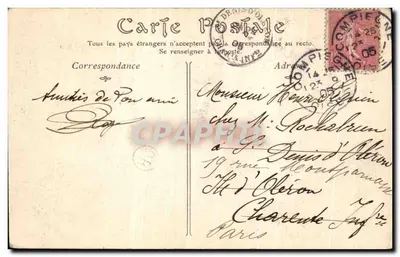 Carte Postale
Tous les pays étrangers n'acceptent pas la correspondance au recto.
Se renseigner à
Correspondance
Adresse
Amitiés de ton ami
Monsieur Henri
chez M. Rochebrun
à St Denis d'Oléron
19 rue Montparnasse
Ile d'Oléron
Charente Infre
Paris
COMPIEGNE
14
23 9
05
COMPIEGNE
05